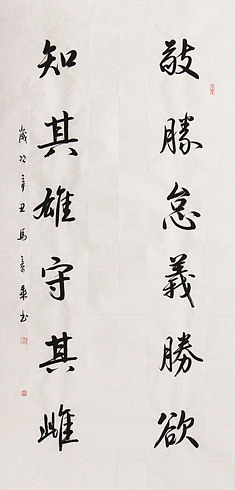 敬勝怠義勝欲
知其雄守其雌
歲次辛丑馬